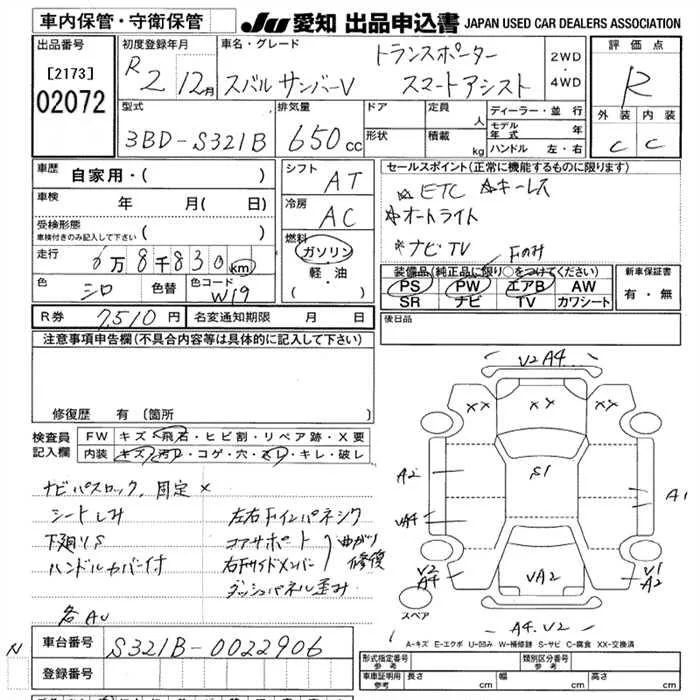 車内保管・守衛保管
JU 愛知 出品申込書 JAPAN USED CAR DEALERS ASSOCIATION
出品番号
[2173]
02072
初度登録年月
R2 12月
車名・グレード
スバル サンバーV
トランスポーター
スマートアシスト
2WD・4WD
評価点
R
外装 内装
C C
型式
3BD-S321B
排気量
650cc
ドア
形状
定員 人
積載 kg
ディーラー・並行
モデル年式 年
ハンドル 左・右
車歴
自家用・( )
車検 年 月( 日)
受検形態
車検付きのみ記入して下さい ( )
走行
6万8千830km
色 シロ 色替 色コード W19
シフト
AT
冷房
AC
燃料
ガソリン
軽・油
( )
セールスポイント(正常に機能するものに限ります)
☆ETC ☆キーレス
☆オートライト
☆ナビTV
Fのみ
装備品(純正品に限り○をつけてください)
PS PW エアB AW
SR ナビ TV カワシート
新車保証書
有・無
R券 7,510円 名変通知期限 月 日
後日品
注意事項申告欄(不具合内容等は具体的に記入して下さい)
修復歴 有 〔箇所 〕
検査員記入欄
FW キズ・飛石・ヒビ割・リペア跡・X要
内装 キズ・汚レ・コゲ・穴・スレ・キレ・破レ
ナビパスロック、固定×
シートしみ
下廻りS
ハンドルカバー付
各AU
左右Fインパネシワ
コアサポート
右Fサイドメンバー
曲がり修復
ダッシュパネル歪み
V2 A4
XX XX XX
A2
S1
A1
VA4
V2 A4
VA2
V1 A2
スペア
A4. V2
A-キズ E-エクボ U-凹み W-補修跡 S-サビ C-腐食 XX-交換済
N
車台番号 S321B-0022906
登録番号
形式指定番号 参考
類別区分番号 参考
車体証明用 参考
長さ cm 幅 cm 高さ cm